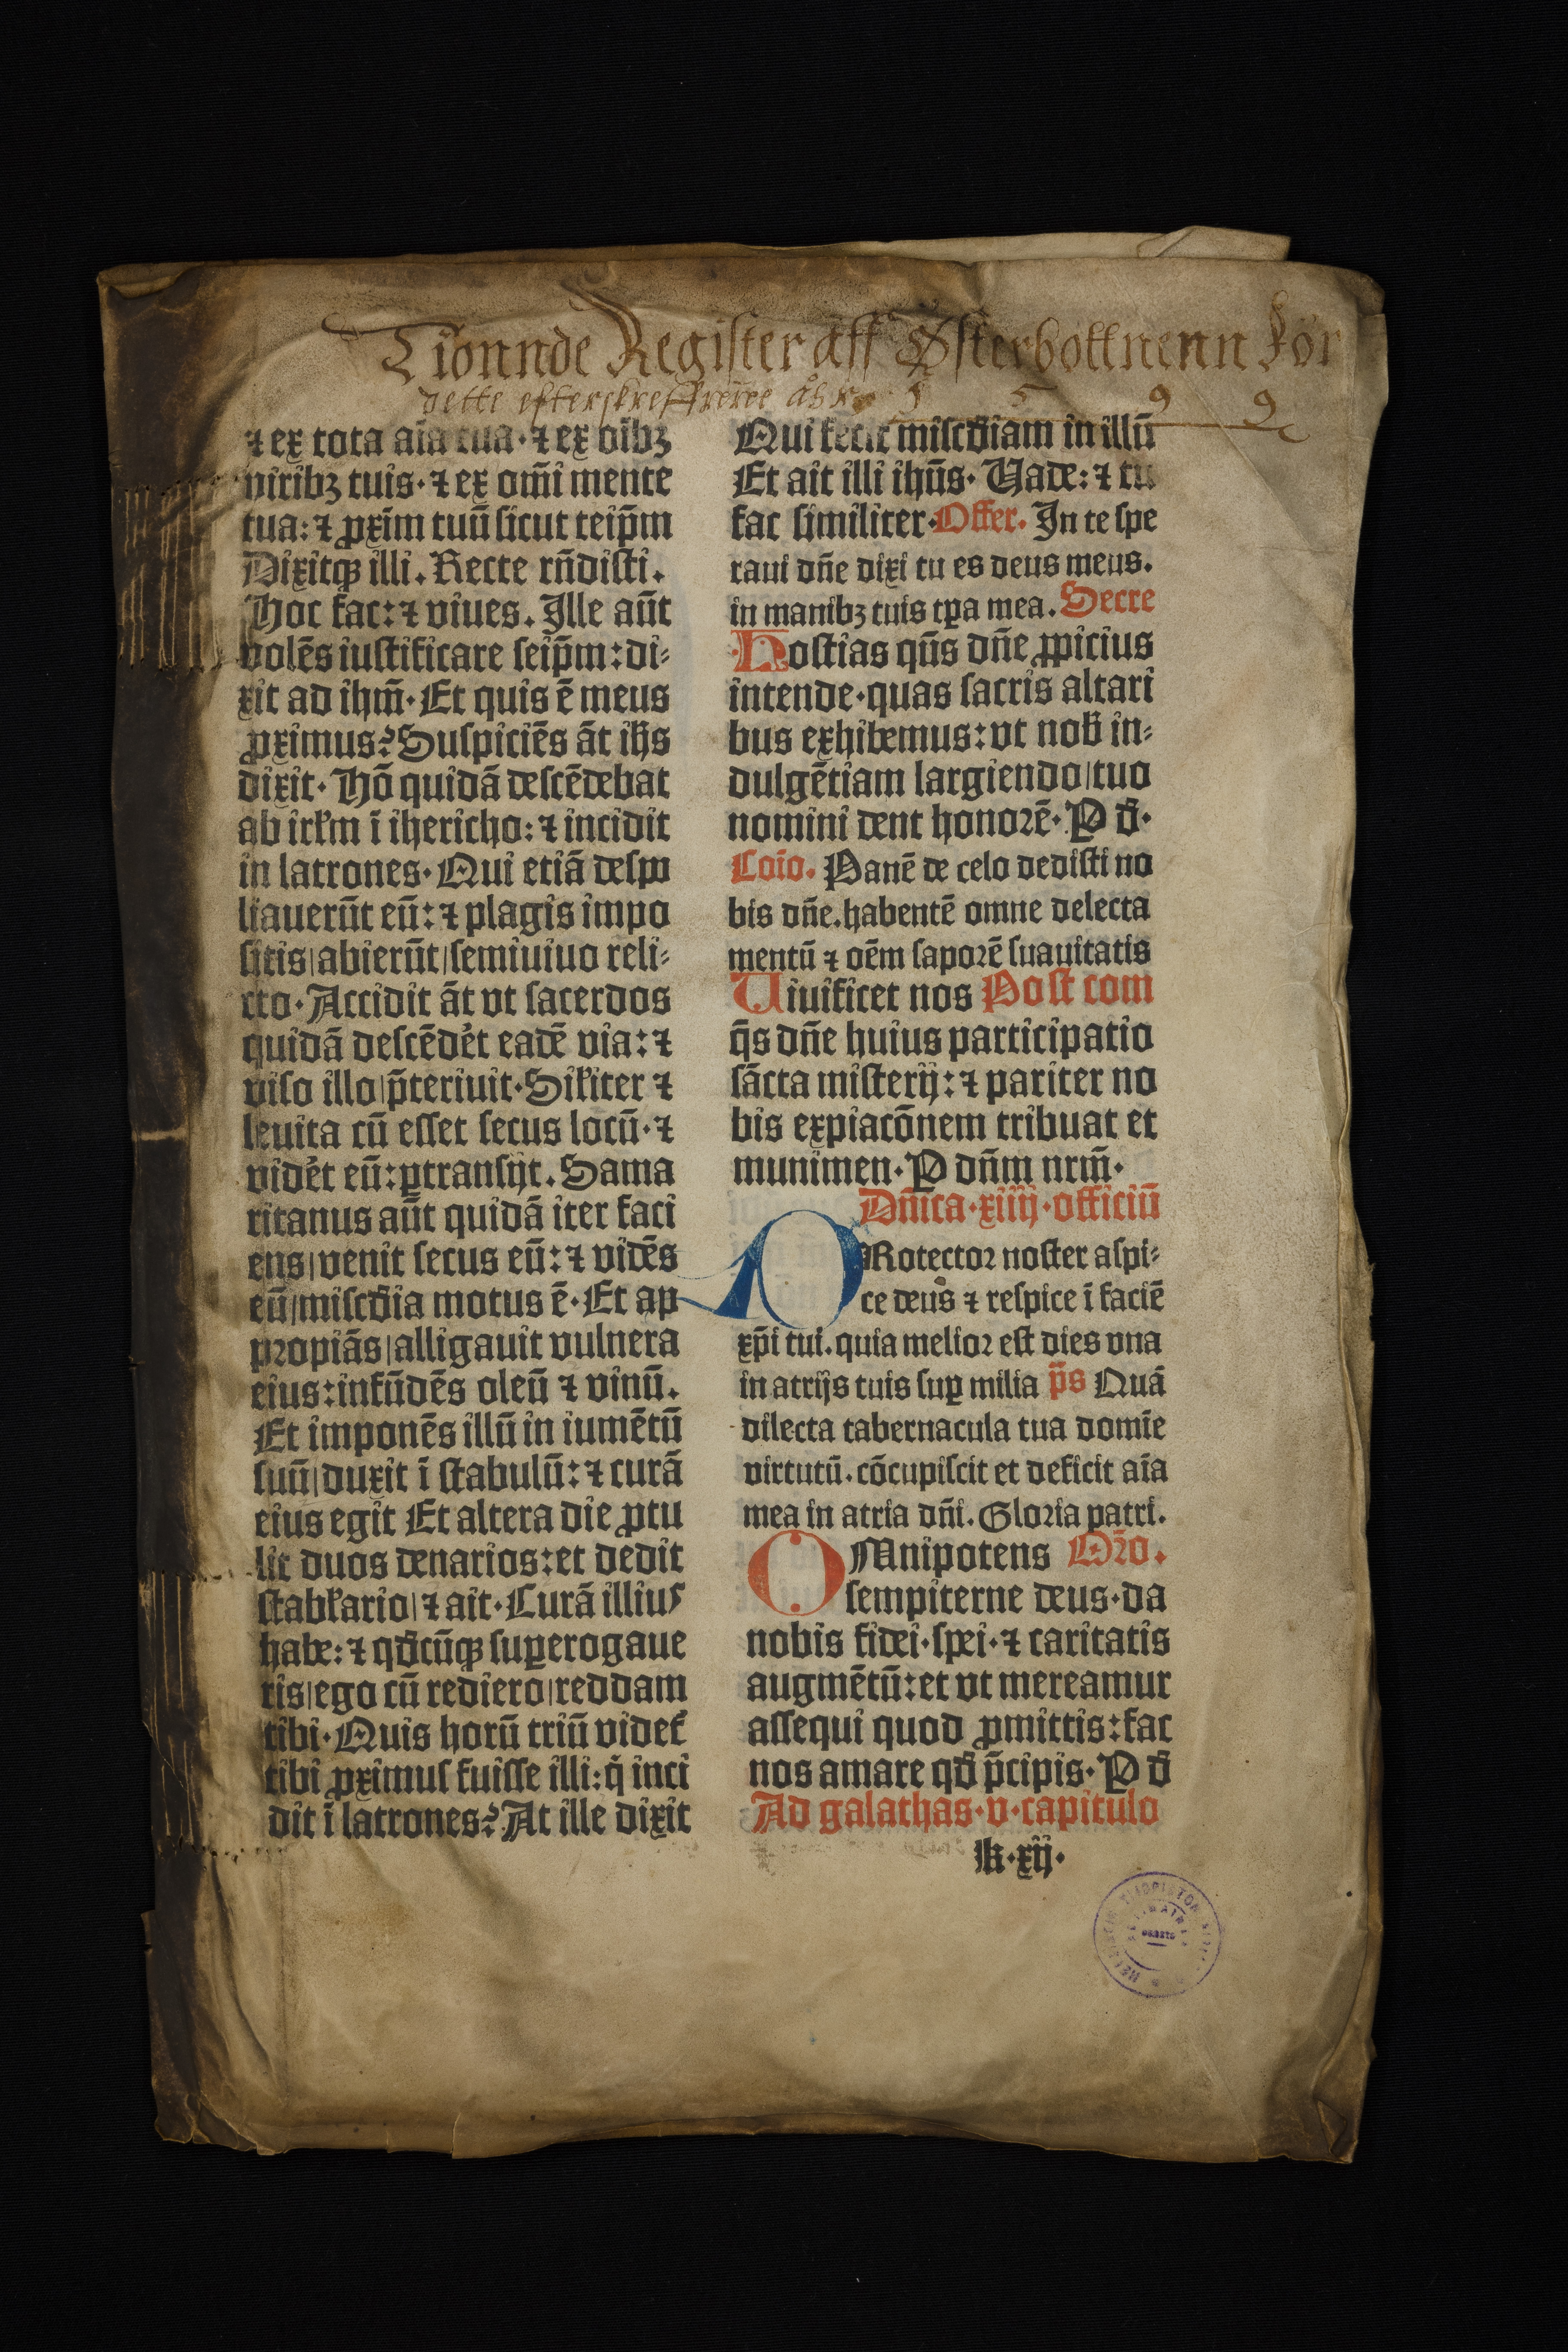 Tionnde Register aff Østerbottnenn För
dette efterskreffne åhr 1 5 9 9
⁊ ex tota aīa tua· ⁊ ex oībꝫ
viribꝫ tuis· ⁊ ex om̄i mente
tua: ⁊ ꝓxīm tuū sicut teip̄m
Dixitqꝫ illi. Recte rn̄disti.
Hoc fac: ⁊ viues. Ille aūt
volēs iustificare seip̄m: di⸗
xit ad ihm̄· Et quis ē meus
ꝓximus? Suspiciēs āt ih̄s
dixit· Hō quidā descēdebat
ab irl̄m ī ihericho: ⁊ incidit
in latrones· Qui etiā despo
liauerūt eū: ⁊ plagis impo
sitis/abierūt/semiuiuo reli⸗
cto· Accidit āt vt sacerdos
quidā descēdēt eadē via: ⁊
viso illo/p̄teriuit· Sil̄iter ⁊
leuita cū esset secus locū· ⁊
vidēt eū: ꝑtransijt. Sama
ritanus aūt quidā iter faci
ens/venit secus eū: ⁊ vidēs
eū/misc̄dia motus ē· Et ap
propiās/alligauit vulnera
eius: infūdēs oleū ⁊ vinū.
Et imponēs illū in iumētū
suū/duxit ī stabulū: ⁊ curā
eius egit Et altera die ꝓtu
lit duos denarios: et dedit
stabl̄ario/⁊ ait· Curā illius
habe: ⁊ qd̄cūqꝫ suꝑerogaue
ris/ego cū rediero/reddam
tibi· Quis horū triū videt̄
tibi ꝓximus fuisse illi: q̇ inci
dit ī latrones? At ille dixit
Qui fecit misc̄diam in illū
Et ait illi ihūs· Vade: ⁊ tu
fac similiter· Offer. In te spe
raui dn̄e dixi tu es deus meus.
in manibꝫ tuis tꝑa mea. Secre
Hostias qn̄s dn̄e ꝓpicius
intende· quas sacris altari
bus exhibemus: vt nob̄ in⸗
dulgētiam largiendo/tuo
nomini dent honorē· P d̄·
Coīo. Panē de celo dedisti no
bis dn̄e. habentē omne delecta
mentū ⁊ oēm saporē suauitatis
Viuificet nos Post com
q̄s dn̄e huius participatio
sācta misterij: ⁊ pariter no
bis expiacōnem tribuat et
munimen· P dn̄m nrm̄·
Dn̄ica· xiiij· officiū
PRotector noster aspi⸗
ce deus ⁊ respice ī faciē
xp̄i tui. quia melior est dies vna
in atrijs tuis suꝑ milia p̄s Quā
dilecta tabernacula tua domīe
virtutū. cōcupiscit et deficit aīa
mea in atria dn̄i. Gloria patri.
OMnipotens Orō.
sempiterne deus· da
nobis fidei· spei· ⁊ caritatis
augmētū: et vt mereamur
assequi quod ꝓmittis: fac
nos amare qd̄ p̄cipis· P d̄
Ad galathas· v· capitulo
k· xij·